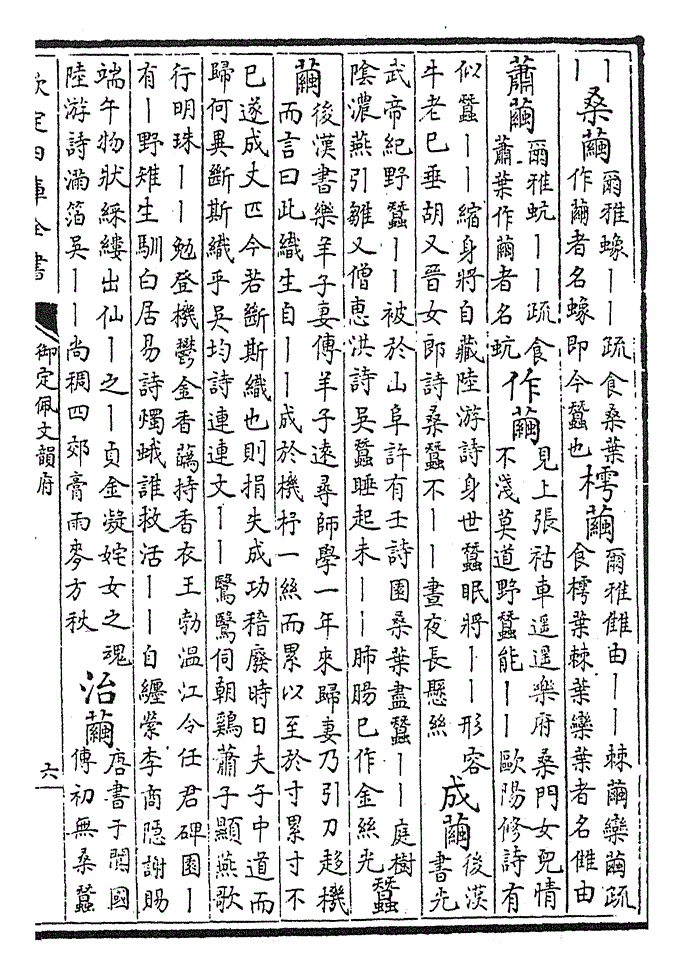 丨丨
丨
桑繭
爾雅蟓丨丨疏食桑葉
作繭者名蟓即今蠶也
樗繭
爾雅雔由丨丨棘繭欒繭疏
食樗葉棘葉欒葉者名雔由
蕭繭
爾雅蚢丨丨疏食
蕭葉作繭者名蚢
作繭
見上張祜車遥遥樂府桑門女兒情
不淺莫道野蠶能丨丨歐陽修詩有
似蠶丨丨縮身將自藏陸游詩身世蠶眠將丨丨形容
牛老已垂胡又晉女郎詩桑蠶不丨丨晝夜長懸絲
成繭
後漢
書光
武帝紀野蠶丨丨被於山阜許有壬詩園桑葉盡蠶丨丨庭樹
陰濃燕引雛又僧惠洪詩吳蠶睡起未丨丨肺腸已作金絲光
蠶
繭
後漢書樂羊子妻傳羊子遠尋師學一年來歸妻乃引刀趍機
而言曰此織生自丨丨成於機杼一絲而累以至於寸累寸不
已遂成丈匹今若斷斯織也則捐失成功稽廢時日夫子中道而
歸何異斷斯織乎吳均詩連連文丨丨鷖鷖伺朝鷄蕭子顯燕歌
行明珠丨丨勉登機鬱金香蘤持香衣王勃溫江令任君碑園丨
有丨野雉生馴白居易詩燭蛾誰救活丨丨自纏縈李商隱謝賜
端午物狀綵縷出仙丨之丨貞金凝姹女之魂
陸游詩滿箔吳丨丨尚稠四郊膏雨麥方秋
治繭
唐書于闐國
傳初無桑蠶
欽定四庫全書
御定佩文韻府
六